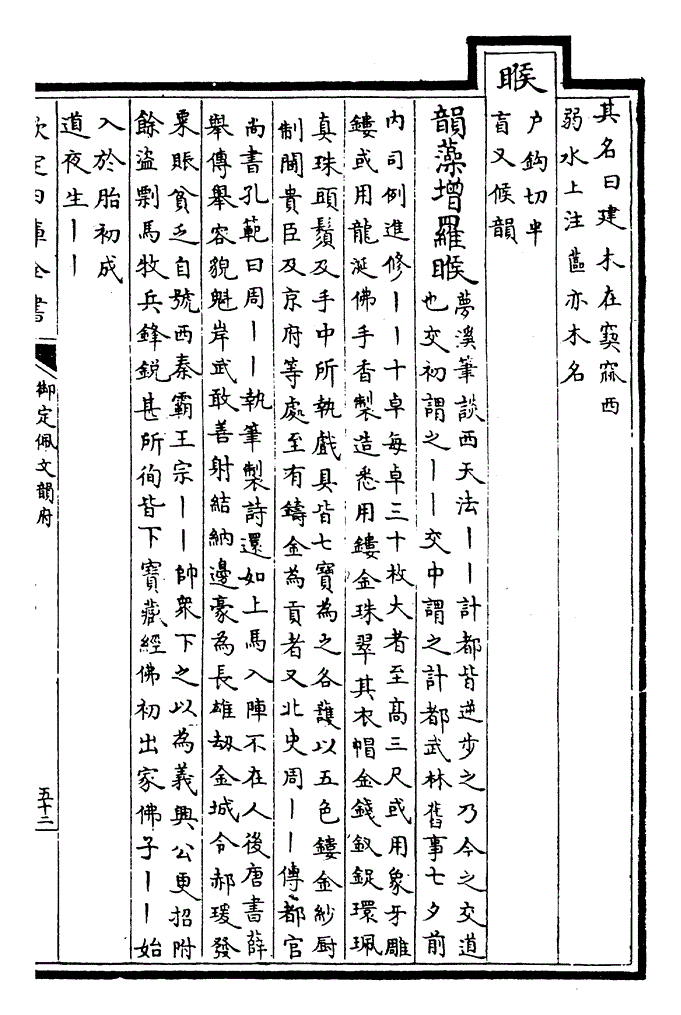 其名曰建木在窫窳西
弱水上注蓲亦木名
睺
户鈎切半
盲又候韻
韻藻增羅睺
夢溪筆談西天法丨丨計都皆逆步之乃今之交道
也交初謂之丨丨交中謂之計都武林舊事七夕前
内司例進修丨丨十卓每卓三十枚大者至髙三尺或用象牙雕
鏤或用龍涎佛手香製造悉用鏤金珠翠其衣帽金錢釵鋜環珮
真珠頭鬚及手中所執戲具皆七寶為之各護以五色鏤金紗厨
制閫貴臣及京府等處至有鑄金為貢者又北史周丨丨傳都官
尚書孔範曰周丨丨執筆製詩還如上馬入陣不在人後唐書薛
舉傳舉容貌魁岸武敢善射結納邊豪為長雄劫金城令郝瑗發
粟賑貧乏自號西秦霸王宗丨丨帥衆下之以為義興公更招附
餘盜剽馬牧兵鋒鋭甚所徇皆下寶藏經佛初出家佛子丨丨始
入於胎初成
道夜生丨丨
欽定四庫全書
御定佩文韻府
五十二